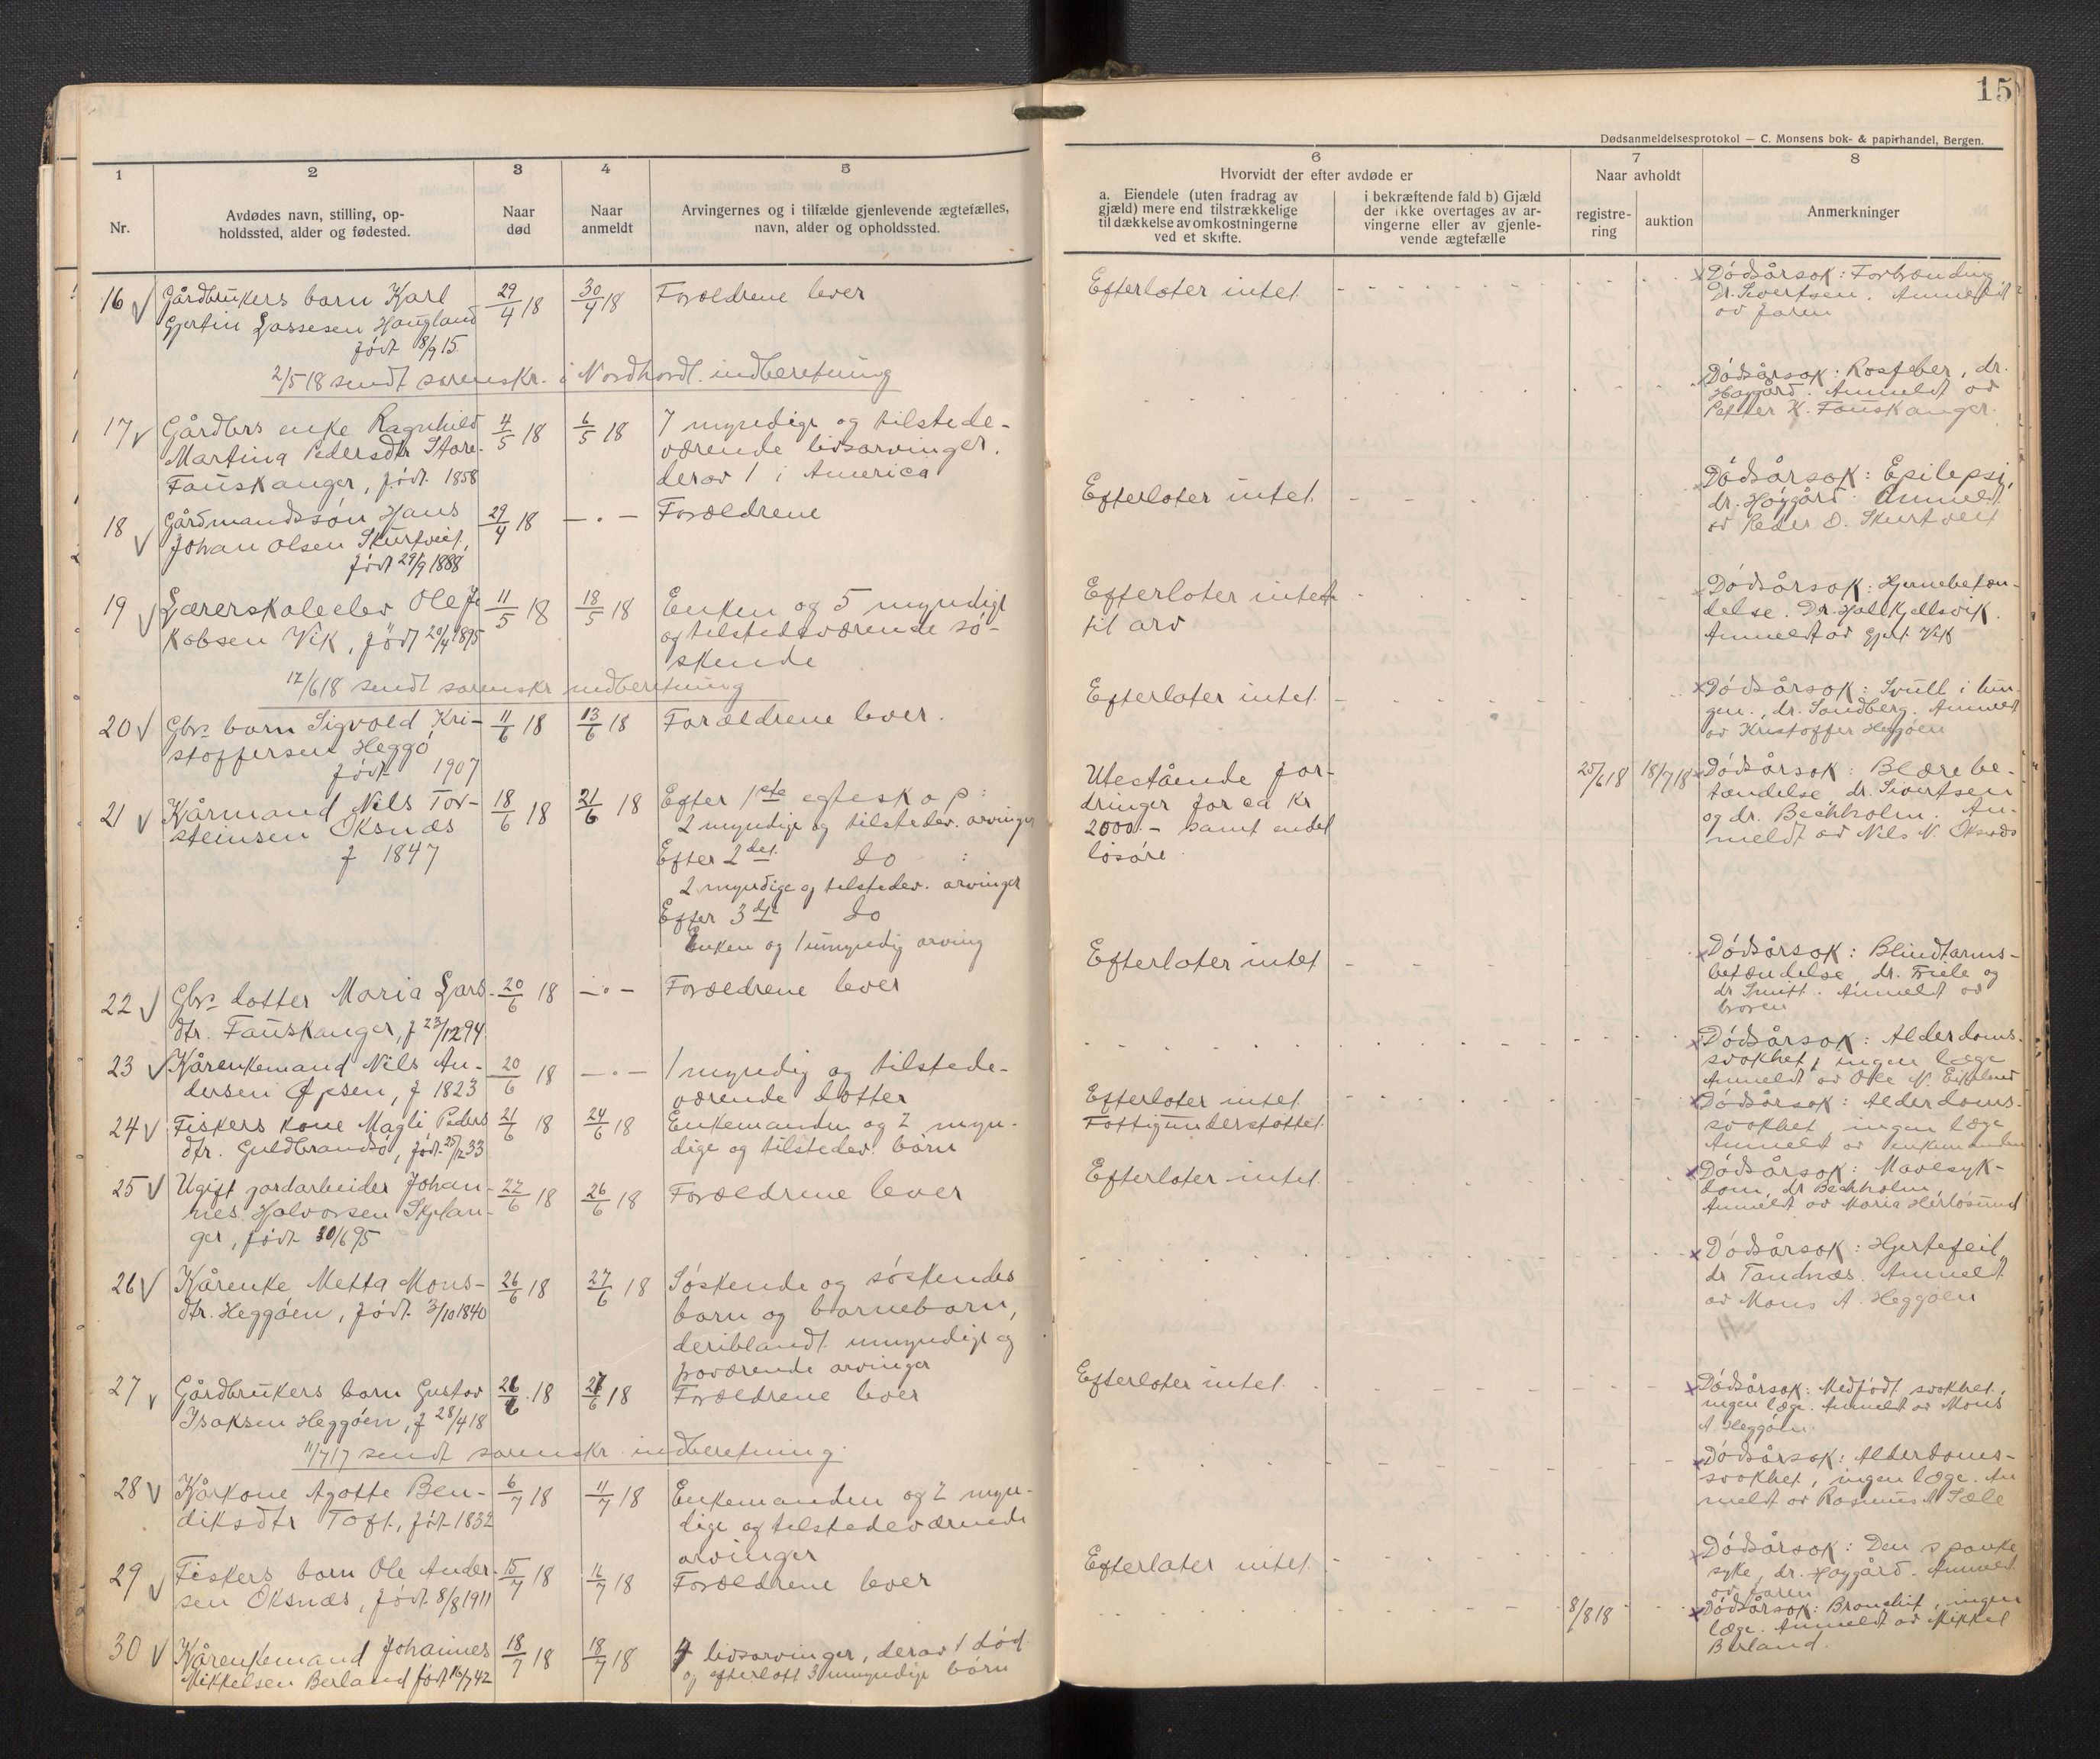 15
Dødsanmeldelsesprotokol — C. Monsens bok- & papirhandel, Bergen.
1
Nr.
2
Avdødes navn, stilling, op-
holdssted, alder og fødested.
3
Naar
død
4
Naar
anmeldt
5
Arvingernes og i tilfælde gjenlevende ægtefælles,
navn, alder og opholdssted.
6
Hvorvidt der efter avdøde er
a. Eiendele (uten fradrag av
gjæld) mere end tilstrækkelige
til dækkelse av omkostningerne
ved et skifte.
i bekræftende fald b) Gjæld
der ikke overtages av ar-
vingerne eller av gjenle-
vende ægtefælle
7
Naar avholdt
registre-
ring
auktion
8
Anmerkninger
16 Gårdbrukers barn Karl
Gjertin Lassesen Haugland
født 8/9 15
29/4 18
30/4 18
Forældrene lever
Efterlater intet
Dødsårsak: Forbrænding
Dr. Sivertsen. Anmeldt
av faren
2/5 18 sendt sorenskr. i Nordhordl. indberetning
17 Gårdbrs enke Ragnhild
Martina Pedersdtr Store
Fauskanger, født 1858
4/5 18
6/5 18
7 myndige og tilstede-
værende livsarvinger,
derav 1 i America
Dødsårsak: Rosfeber, dr.
Høygård. Anmeldt av
Petter K. Fauskanger.
18 Gårdmandssøn Hans
Johan Olsen Skurtveit,
født 29/9 1888
29/4 18
— · —
Forældrene
Efterlater intet
Dødsårsak: Epilepsi,
dr. Høygård. Anmeldt
av Peder O. Skurtveit
19 Lærerskoleelev Ole Ja-
kobsen Vik, født 29/4 1895
11/5 18
18/5 18
Enken og 5 myndige
og tilstedeværende sø-
skende
Efterlater intet
til arv
Dødsårsak: Hjernebetæn-
delse. Dr. Hallkjelsvik.
Anmeldt av Gjert Vik
12/6 18 sendt sorenskr indberetning
20 Gbrs barn Sigvald Kri-
stoffersen Heggø
født 1907
11/6 18
13/6 18
Forældrene lever.
Efterlater intet
Dødsårsak: Svull i lun-
gen, dr. Sandberg. Anmeldt
av Kristoffer Heggøen
21 Kårmand Nils Tor-
steinsen Oksnæs
f 1847
18/6 18
21/6 18
Efter 1ste egteskap:
2 myndige og tilstedev. arvinger
Efter 2det do :
2 myndige og tilstedev. arvinger
Efter 3dje do
Enken og 1 umyndig arving
Utestående for-
dringer for ca kr
2000.- samt endel
løsøre
25/6 18
18/7 18
Dødsårsak: Blærebe-
tændelse dr. Sivertsen
og dr. Bechholm. An-
meldt av Nils N. Oksnæs
22 Gbrs datter Maria Lars-
dtr. Fauskanger, f 23/12 94
20/6 18
— · —
Forældrene lever
Efterlater intet
Dødsårsak: Blindtarms-
betændelse, dr. Friele og
dr Smitt. Anmeldt av
broren
23 Kårenkemand Nils An-
dersen Ypsen, f 1823
20/6 18
— · —
1 myndig og tilstede-
værende datter
Dødsårsak: Alderdoms-
svakhet, ingen læge
Anmeldt av Ole N. Eikeland
24 Fiskers kone Magli Peders
dtr. Guldbrandsø, født 25/12 33
21/6 18
24/6 18
Enkemanden og 2 myn-
dige og tilstedev. børn
Efterlater intet
Fattigunderstøttet
Dødsårsak: Alderdoms-
svakhet, ingen læge
Anmeldt av enkemanden
25 Ugift jordarbeider Johan-
nes Halvorsen Skjelan-
ger, født 30/6 95
22/6 18
26/6 18
Forældrene lever
Efterlater intet
Dødsårsak: Mavesyk-
dom, dr Bechholm,
Anmeldt av Maria Herløsund
26 Kårenke Metta Mons-
dtr. Heggøen, født 3/10 1840
26/6 18
27/6 18
Søskende og søskendes
barn og barnebarn,
deriblandt umyndige og
fraværende arvinger
Dødsårsak: Hjertefeil,
dr Tandnæs. Anmeldt
av Mons A. Heggøen
27 Gårdbrukers barn Gustav
Isaksen Heggøen, f 28/4 18
26/6 18
27/6 18
Forældrene lever
Efterlater intet
Dødsårsak: Medfødt svakhet,
ingen læge. Anmeldt av Mons
A. Heggøen
11/7 17 sendt sorenskr. indberetning.
28 Kårkone Agatte Ben-
diksdtr Toft, født 1832
6/7 18
11/7 18
Enkemanden og 2 myn-
dige og tilstedeværende
arvinger
Dødsårsak: Alderdoms-
svakhet, ingen læge. An
meldt av Rasmus A Sæle
29 Fiskers barn Ole Ander-
sen Oksnæs, født 8/8 1911
15/7 18
16/7 18
Forældrene lever
Efterlater intet
Dødsårsak: Den spanske
syke, dr. Høygård. Anmeldt
av faren
30 Kårenkemand Johannes
Mikkelsen Berland født 16/7 42
18/7 18
18/7 18
4 livsarvinger, derav 1 død
og efterlatt 3 umyndige børn
8/8 18
Dødsårsak: Bronchit, ingen
læge. Anmeldt av Mikkel
Berland.